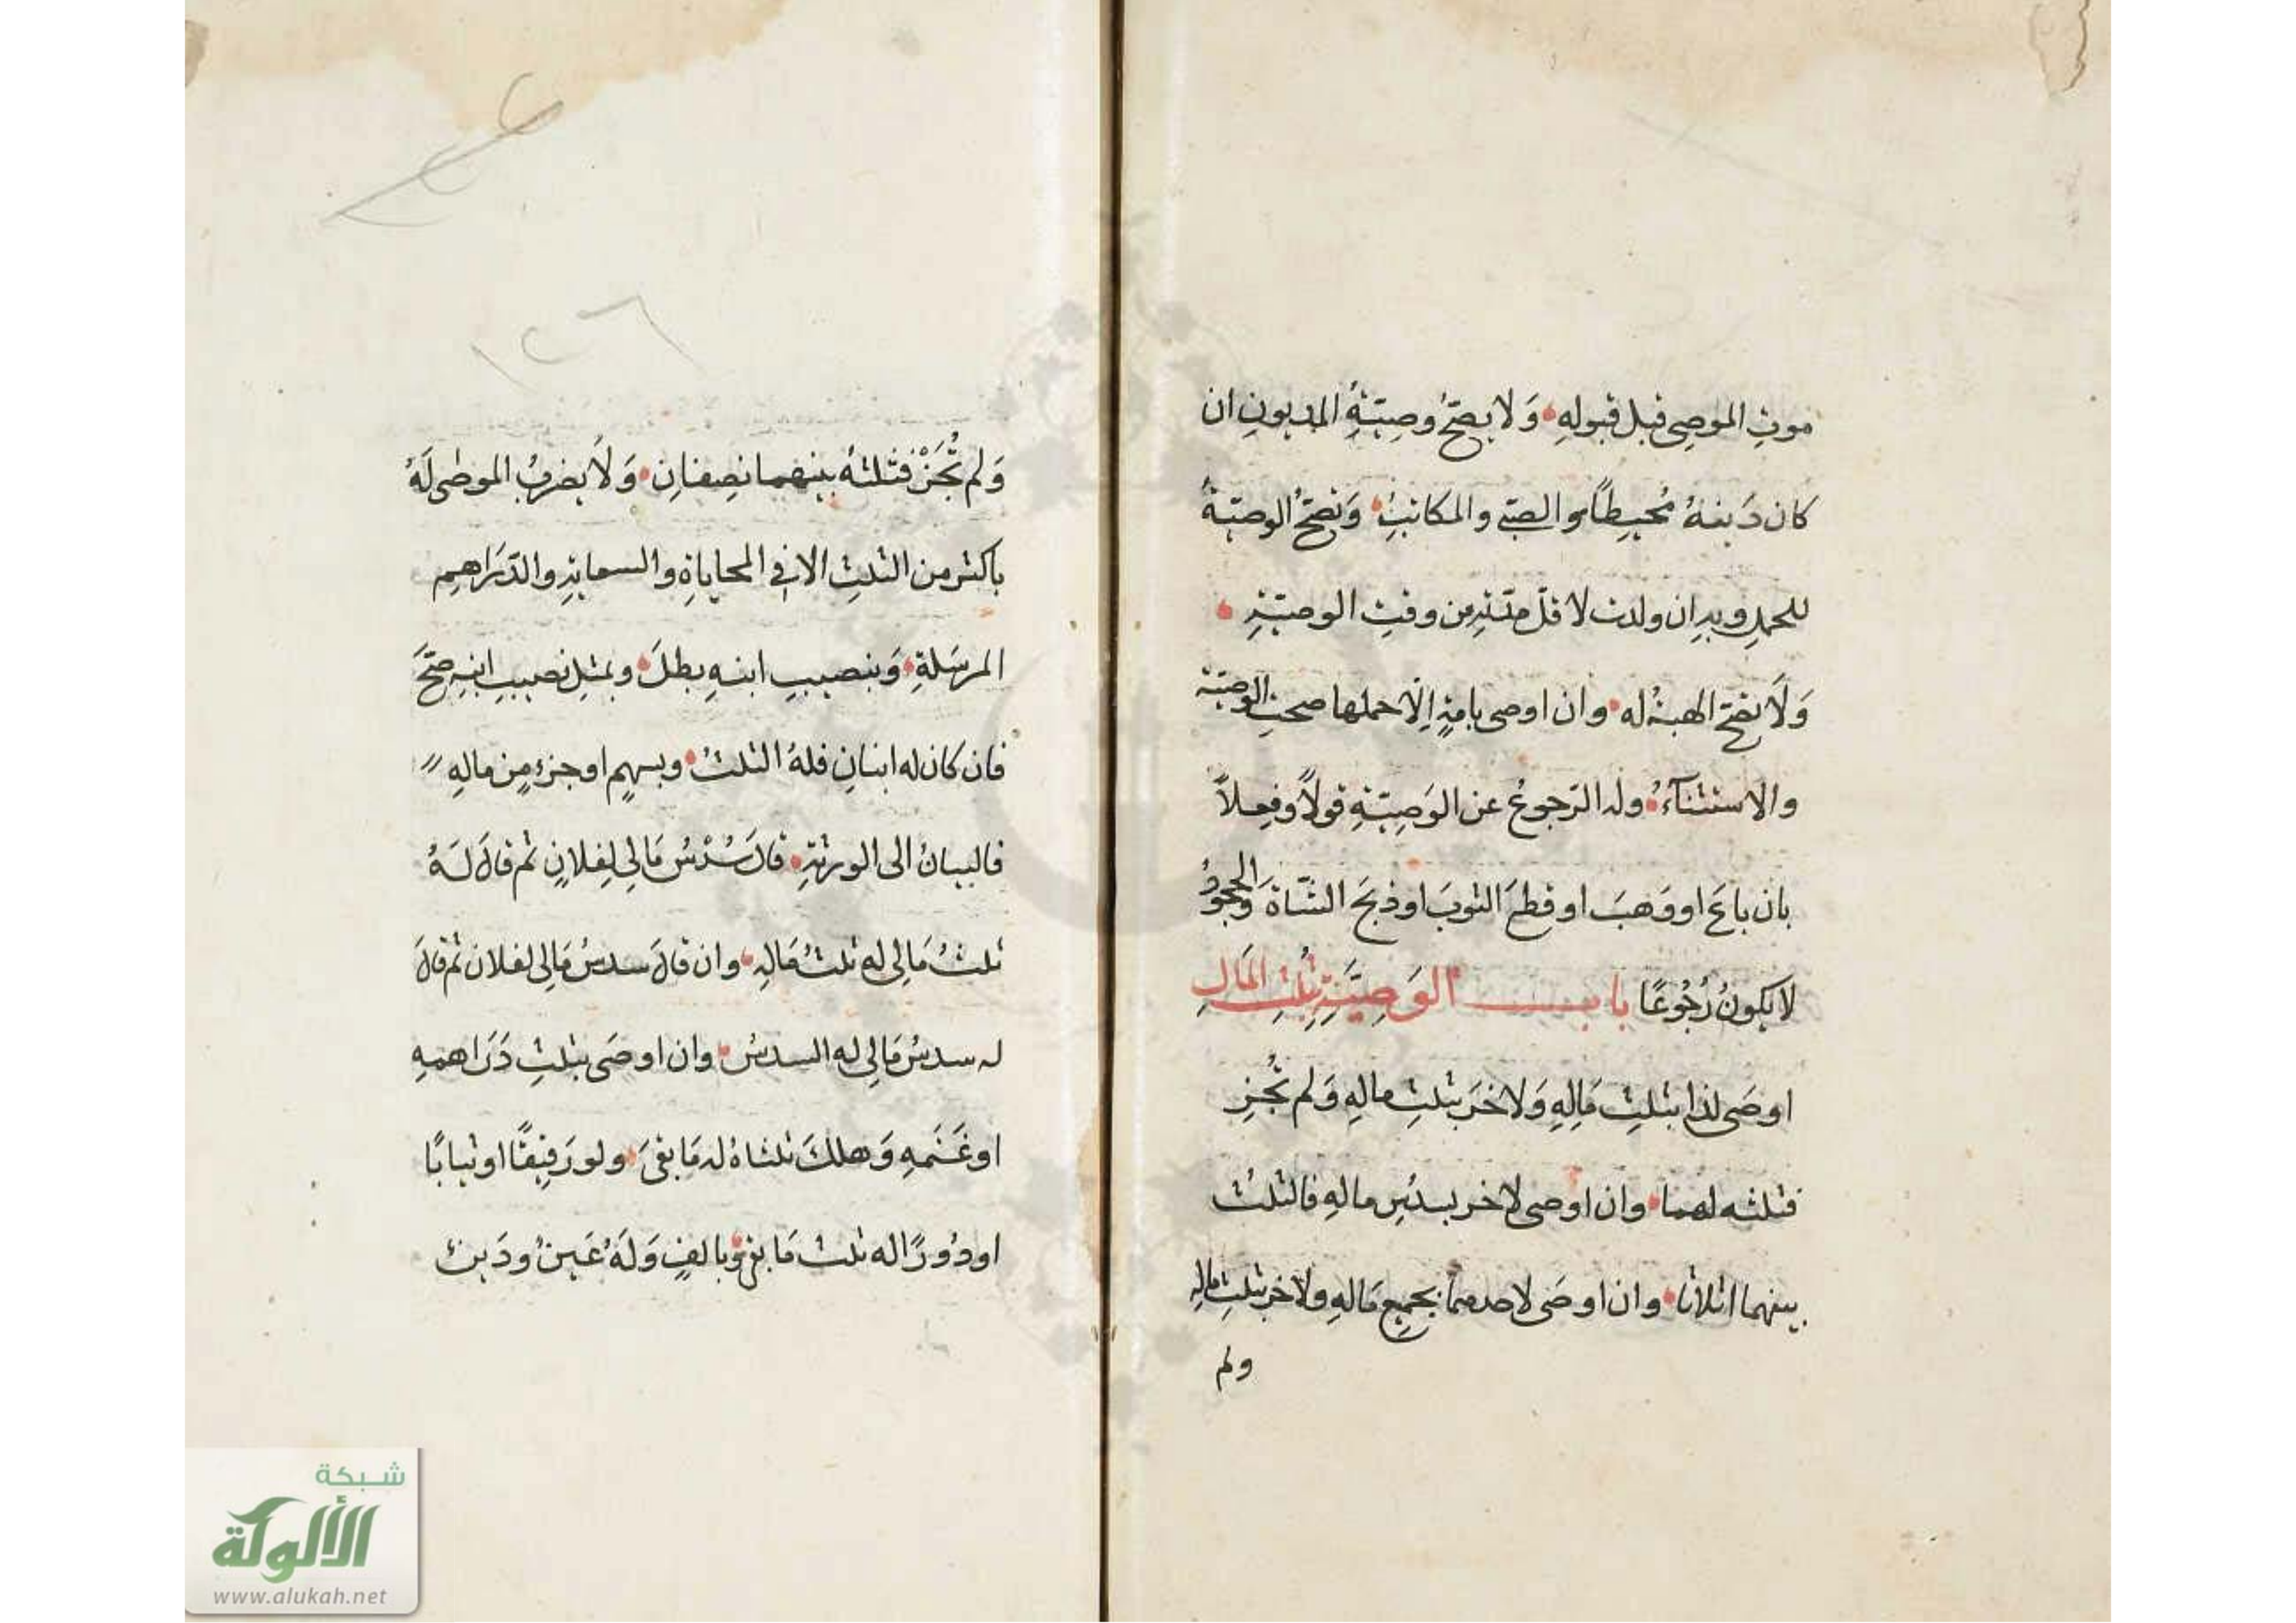 موتِ الموصِي قبل قبولهِ وَلا يصحّ وصِيّتهُ المديونِ ان
كان دَينهُ مُحيطًا والصبّي والمكاتبِ وَتصحّ الوصيّةُ
للحملِ وبهِ ان ولدت لاقلّ مدّتهِ من وقتِ الوصيّةِ
وَلَا تصحّ الهبة له وان اوصى بامةٍ اِلّا حملها صحت الوصيّة
والاستثنآءُ وله الرّجوعُ عن الوَصِيّةِ قولًا وفِعلًا
بان باعَ او وَهبَ او قطعَ الثوبَ او ذبحَ الشّاةَ وَالجحودُ
لا يكونُ رُجُوعًا باب الوَصِيَّةِ بِثُلثِ المَالِ
اوصَى لذا بثلثِ مَالِهِ وَلاخرَ بثلثِ مالهِ وَلم تُجزِ
فثلثه لهما وان اوصى لاخر بسدُسِ مالهِ فالثلث
بينهما اثلاثا وان اوصَى لاحدهما بجميعِ مَالهِ ولاخر بثلثِ ماله
ولم
١٢٦
وَلم تُجَزْ فثلثهُ بينهما نصِفانِ وَلَا يضربُ الموصٰى لَهُ
باكثر من الثلثِ الا في المحاباةِ والسعايةِ والدّرَاهِمِ
المرسَلةِ وَبنصيبِ ابنهِ بطلَ وبمثلِ نصيبِ ابنهِ صحَّ
فان كان له ابنانِ فلهُ الثلثُ وبسهمٍ او جزءٍ مِن مالهِ
فالبيانُ الى الورثةِ قالَ سُدْسُ مَالِي لِفلانٍ ثم قالَ لَهُ
ثلثُ مَالِي له ثلثُ مَالهِ وان قالَ سدسُ مَالِي لفلان ثم قالَ
له سدسُ مَالِي له السدسُ وان اوصَى بثلثِ دَرَاهمهِ
او غَنَمهِ وَهلكَ ثلثاهُ له مَا بقىَ ولو رَقيقًا او ثيابًا
او دُورًا له ثلث مَا بقى وبالفٍ وَلَهُ عَينٌ ودَينٌ
شبكة
الألوكة
www.alukah.net